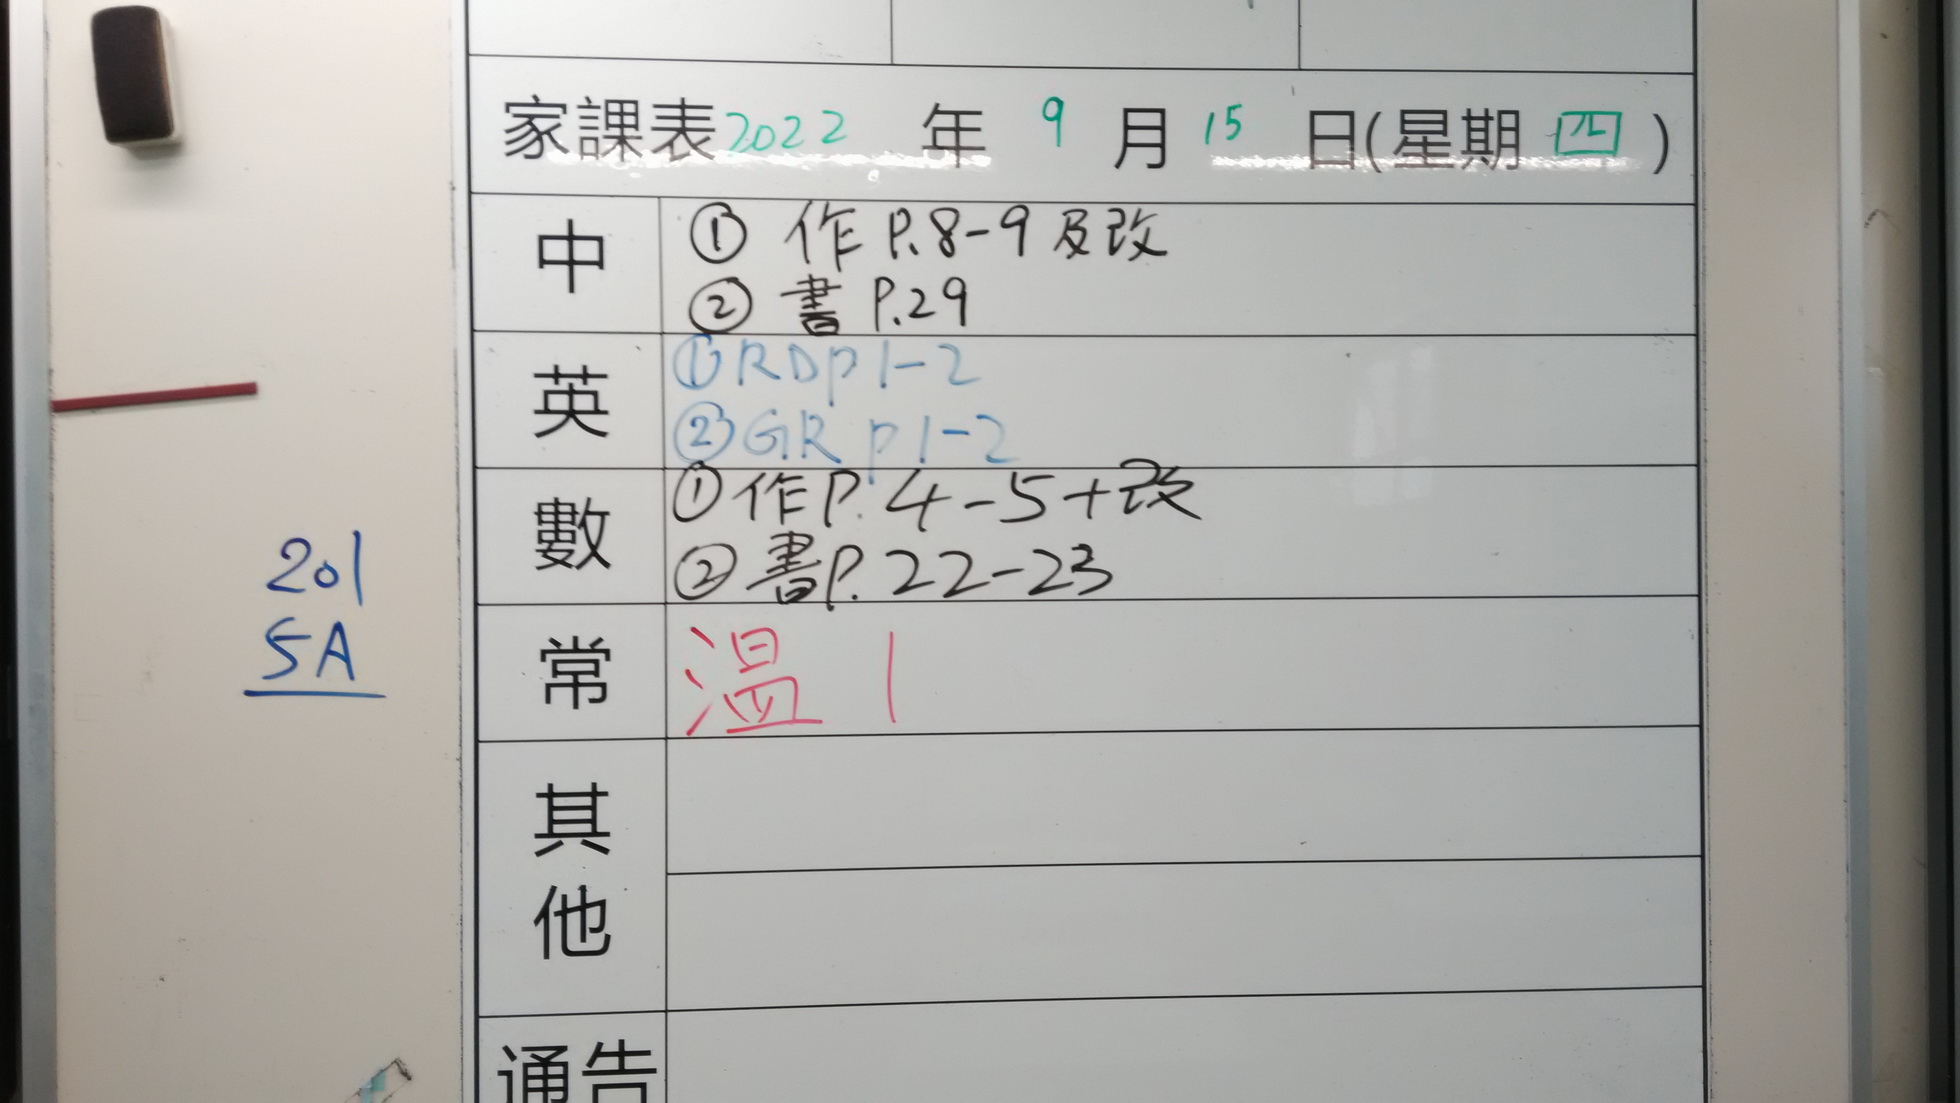 家課表2022 年 9 月 15 日(星期 四)
中
① 作 P.8-9 及改
② 書 P.29
英
① RD p 1-2
② GR p 1-2
數
① 作 P. 4-5+改
② 書 P. 22-23
常
溫 1
其他
通告
201
5A